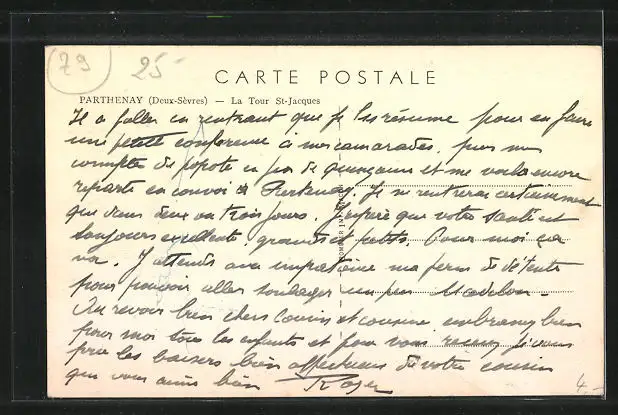 79
25
CARTE POSTALE
PARTHENAY (Deux-Sèvres) — La Tour St-Jacques
Il a fallu en rentrant que je les résume pour en faire
une petite conférence à mes camarades, puis mes
comptes de popote en fin de quinzaine et me voilà encore
reparti en convoi à Partenay. Je ne rentrerai certainement
que dans deux ou trois jours. J'espère que votre santé est
toujours excellente, grands et petits. Pour moi ça
va. J'attends avec impatience ma perm de détente
pour pouvoir aller soulager un peu Madelon -
Au revoir bien chers cousin et cousine, embrassez bien
pour moi tous les enfants et pour vous recevez
les baisers bien affectueux de votre cousin
qui vous aime bien Roger
4.-